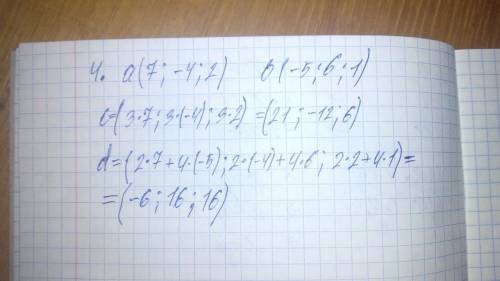 4. a(7; -4; 2) b(-5; 6; 1)
c=(3·7; 3·(-4); 3·2)=(21; -12; 6)
d=(2·7+4·(-5); 2·(-4)+4·6; 2·2+4·1)=
=(-6; 16; 16)